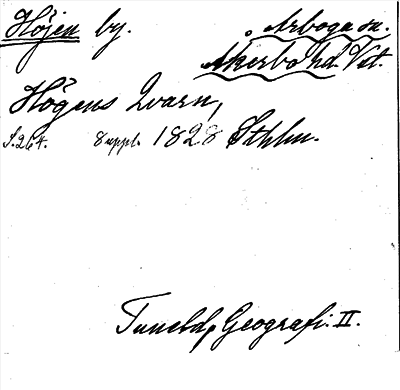 Höjen by. Arboga sn.
Åkerbo hd Vstl.
Högens Qvarn,
S. 264. 8 uppl. 1828 Sthlm.
Tuneld, Geografi. II.